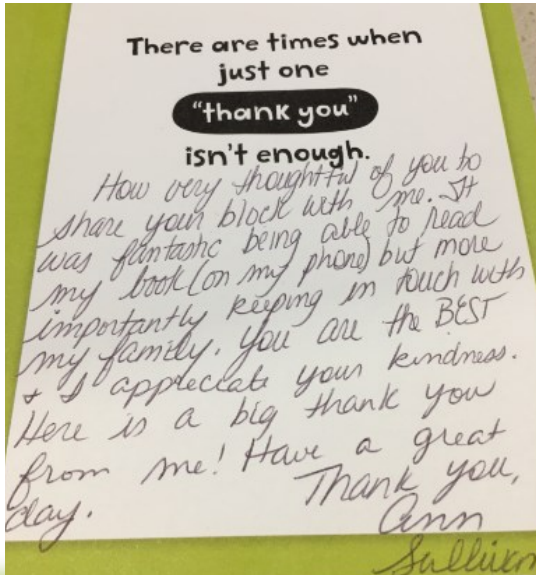 There are times when
just one
“thank you”
isn't enough.
How very thoughtful of you to
share your block with me. It
was fantastic being able to read
my book (on my phone) but more
importantly keeping in touch with
my family. You are the BEST
+ I appreciate your kindness.
Here is a big thank you
from me! Have a great
day.
Thank you,
Ann
Sullivan